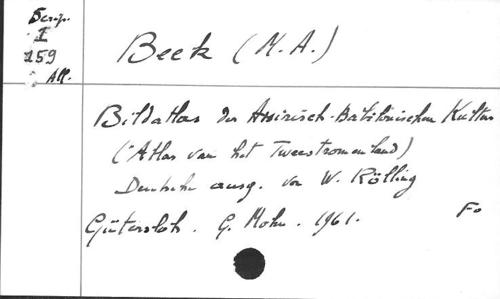 Scrip.
I
159
All.
Beek (M.A.)
Bildatlas der Assirisch-Babilonischen Kultur
("Atlas van het Tweestromenland)
Deutsche ausg. von W. Rölling
Gütersloh. G. Mohn. 1961. Fo